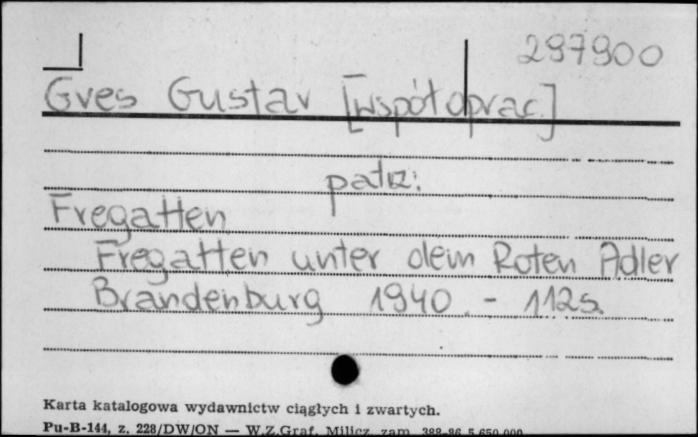 297900
Gres Gustav [współoprac.]
patrz:
Fregatten
Fregatten unter dem Roten Adler
Brandenburg 1940. - 112s.
Karta katalogowa wydawnictw ciągłych i zwartych.
Pu-B-144, z. 228/DW/ON — W.Z.Graf. Milicz zam. 388-86 5.650.000